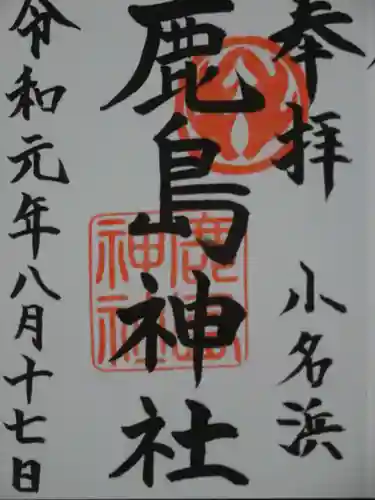 奉拝 小名浜
鹿島神社
鹿島神社
令和元年八月十七日